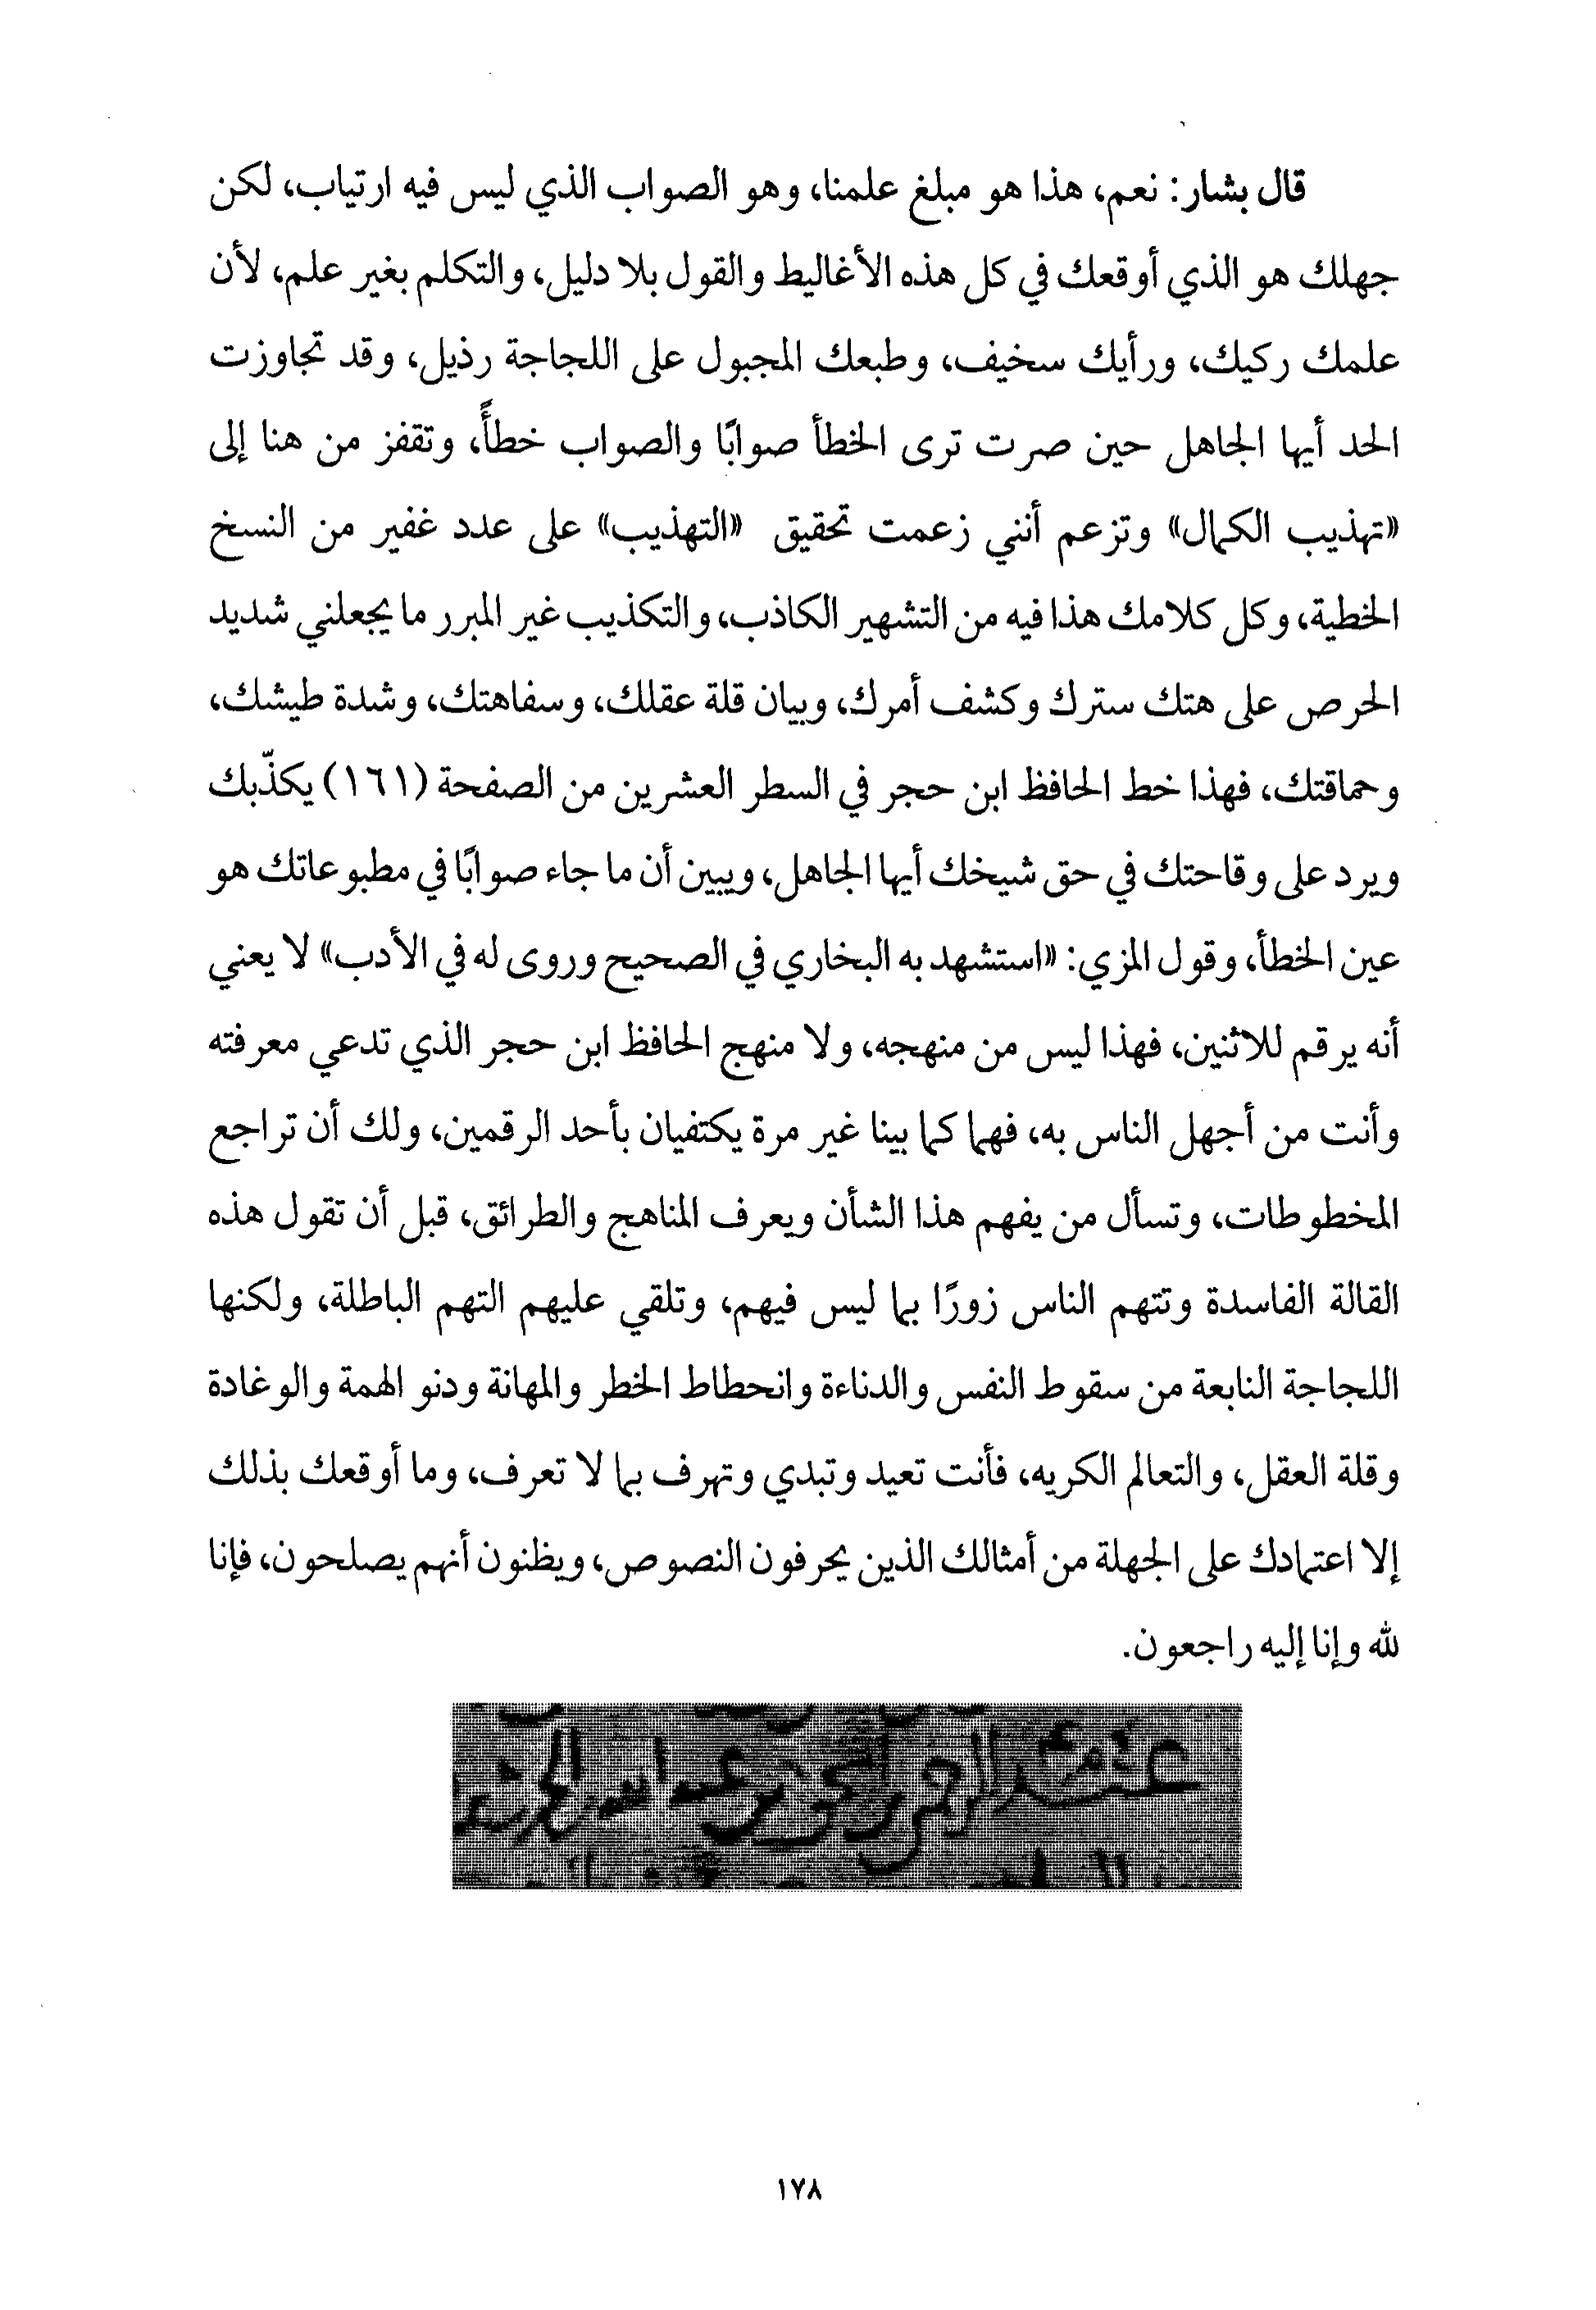 قال بشار: نعم، هذا هو مبلغ علمنا، وهو الصواب الذي ليس فيه ارتياب، لكن
جهلك هو الذي أوقعك في كل هذه الأغاليط والقول بلا دليل، والتكلم بغير علم، لأن
علمك ركيك، ورأيك سخيف، وطبعك المجبول على اللجاجة رذيل، وقد تجاوزت
الحد أيها الجاهل حين صرت ترى الخطأ صوابًا والصواب خطأً، وتقفز من هنا إلى
«تهذيب الكمال» وتزعم أنني زعمت تحقيق «التهذيب» على عدد غفير من النسخ
الخطية، وكل كلامك هذا فيه من التشهير الكاذب، والتكذيب غير المبرر ما يجعلني شديد
الحرص على هتك سترك وكشف أمرك، وبيان قلة عقلك، وسفاهتك، وشدة طيشك،
وحماقتك، فهذا خط الحافظ ابن حجر في السطر العشرين من الصفحة (١٦١) يكذّبك
ويرد على وقاحتك في حق شيخك أيها الجاهل، ويبين أن ما جاء صوابًا في مطبوعاتك هو
عين الخطأ، وقول المزي: «استشهد به البخاري في الصحيح وروى له في الأدب» لا يعني
أنه يرقم للاثنين، فهذا ليس من منهجه، ولا منهج الحافظ ابن حجر الذي تدعي معرفته
وأنت من أجهل الناس به، فهما كما بينا غير مرة يكتفيان بأحد الرقمين، ولك أن تراجع
المخطوطات، وتسأل من يفهم هذا الشأن ويعرف المناهج والطرائق، قبل أن تقول هذه
القالة الفاسدة وتتهم الناس زورًا بما ليس فيهم، وتلقي عليهم التهم الباطلة، ولكنها
اللجاجة النابعة من سقوط النفس والدناءة وانحطاط الخطر والمهانة ودنو الهمة والوغادة
وقلة العقل، والتعالم الكريه، فأنت تعيد وتبدي وتهرف بما لا تعرف، وما أوقعك بذلك
إلا اعتمادك على الجهلة من أمثالك الذين يحرفون النصوص، ويظنون أنهم يصلحون، فإنا
لله وإنا إليه راجعون.
الرحمن بن عبد الله
١٧٨